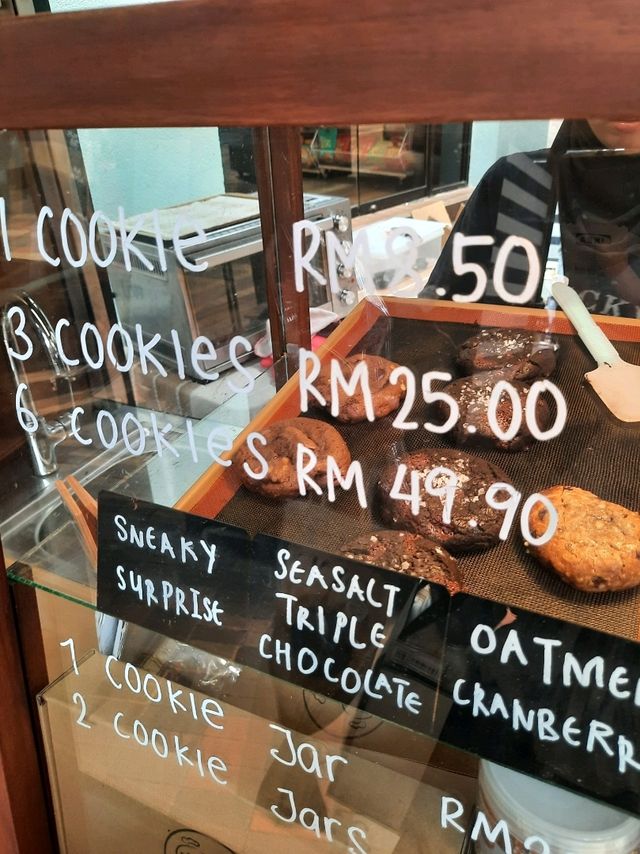 1 COOKIE RM8.50
3 COOKIES RM25.00
6 COOKIES RM 49.90
SNEAKY
SURPRISE
SEASALT
TRIPLE
CHOCOLATE
OATME
CRANBERR
1 COOKIE Jar
2 COOKIE Jars
RM